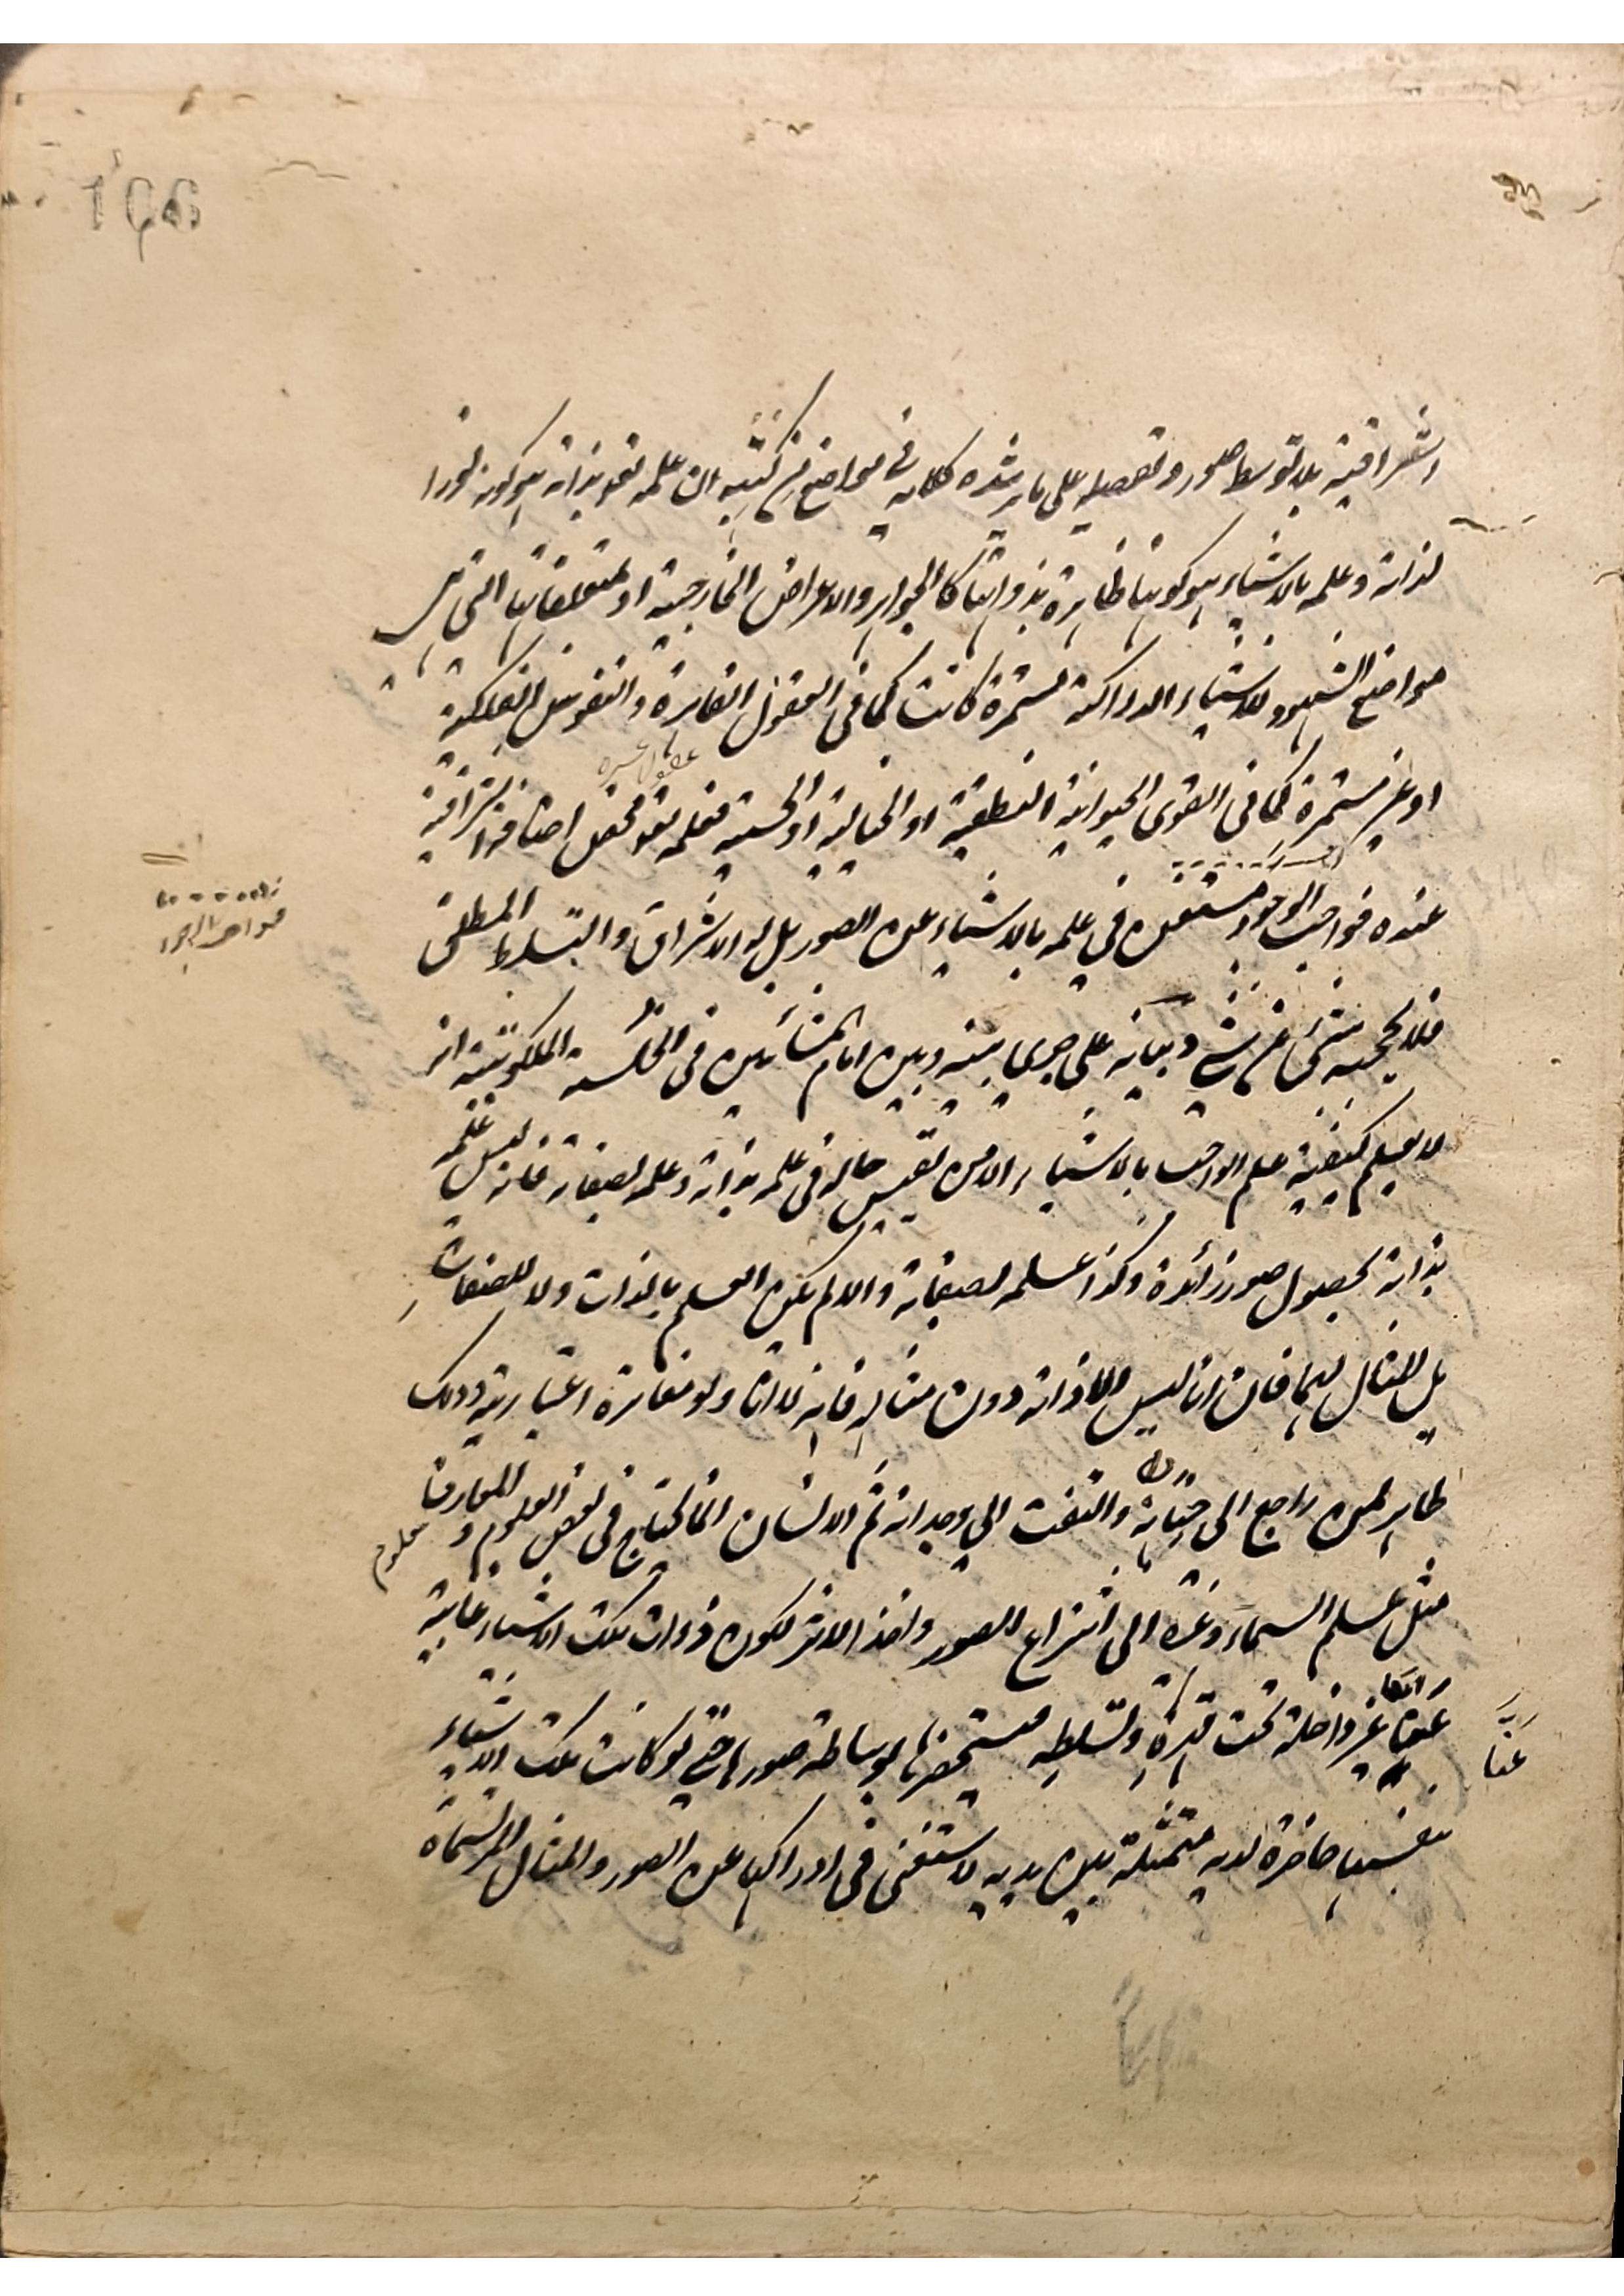 اشراقية بلا توسط صور وتفصيله على ما يرشده كلامه في مواضع من كتبه ان علمه تعو بذاته هو كونه نورا
لذاته وعلمه بالاشياء هو كونها ظاهرة بذواتها كالجواهر والاعراض الخارجية او لمتعلقاتها التي هي
مواضع الشهود للاشياء الدراكة مستمرة كانت كما في العقول القاهرة والنفوس الفلكية
او غير مستمرة كما في القوى الحيوانية النطقية او الخيالية او الحسية فعلمه تعو محض اضافة اشراقية
عنده فواجب الوجود مستغن في علمه بالاشياء عن الصور بل له الاشراق والتسلط المطلق
فلا يحجبه شئ عن شئ وبيانه على جرى بينه وبين امام المشائين في الخلسة الملكوتية انه
لا يعلم كيفية علم الواجب بالاشياء الا من تقيس حاله في علمه بذاته وعلمه لصفاته فانه ليس علمه
بذاته لحصول صور زائدة وكذا علمه لصفاته والا لم يكن العلم بالذات ولا للصفات
بل للمثال لهما فان انا ليس الا ذاته دون مثاله فانه لا انا ولو مغايرة اعتبارية وذلك
ظاهر لمن راجع الى والتفت الى وجدانه ثم الانسان انما يحتاج في بعض العلوم والمعارف
علوم
مثل علم السماء وغيره الى انتزاع الصور واخذ الاثر لكون ذوات تلك الاشياء غائبة
عنا غير داخلة تحت قدرته وتسلطه مستحضرها بوساطة صورها حتى لو كانت تلك الاشياء
عنا
بنفسها حاضرة لديه متمثلة بين يديه لاستغنى في ادراكها عن الصور والمثال المرتسماة
106